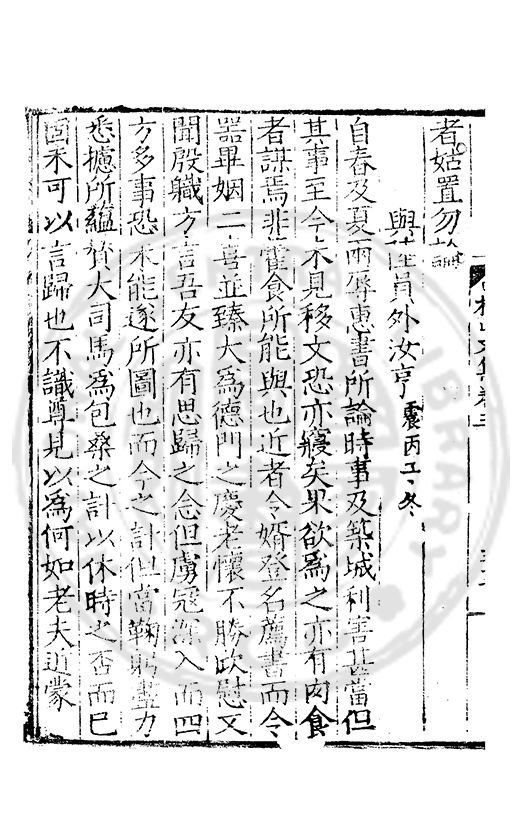 者姑置勿論
與程員外汝亨 震丙工冬
自春及夏兩辱惠書所論時事及築城利害甚當但
其事至今不見移文恐亦寢矣果欲為之亦有肉食
者謀焉非藿食所能與也近者令婿登名薦書而令
器畢姻二喜並臻大為德門之慶老懷不勝欣慰又
聞殷職方言吾友亦有思歸之念但虜寇深入而四
方多事恐未能遂所圖也而今之計但當鞠躬盡力
悉攄所蘊贊大司馬為包桑之計以休時之否而已
固未可以言歸也不識尊見以為何如老夫近蒙